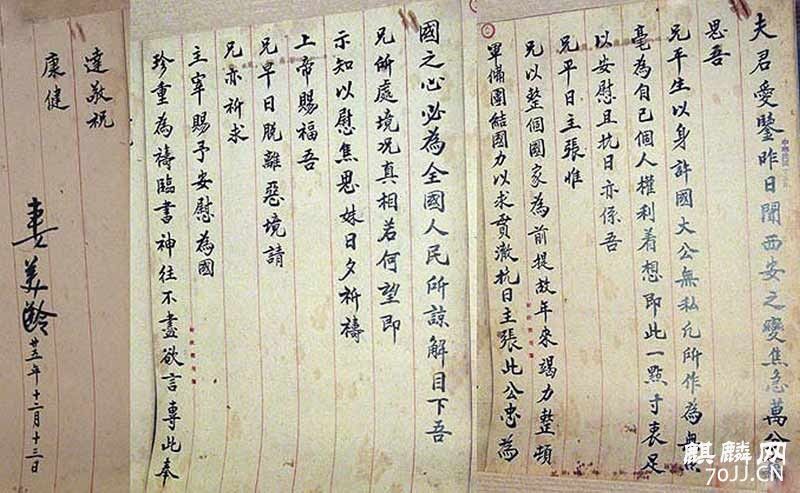 夫君愛鑒昨日聞西安之變焦急萬分
思吾
兄平生以身許國大公無私凡所作為無絲
毫為自己個人權利着想即此一點寸衷足
以安慰且抗日亦係吾
兄平日主張惟
兄以整個國家為前提故年來竭力整頓
軍備團結國力以求貫澈抗日主張此公忠為
國之心必為全國人民所諒解目下吾
兄所處境况真相若何望即
示知以慰焦思妹日夕祈禱
上帝賜福吾
兄早日脫離惡境請
兄亦祈求
主宰賜予安慰為國
珍重為禱臨書神往不盡欲言專此奉
達敬祝
康健
妻 美齡 廿五年十二月十三日
麒麟网
70JJ.CN